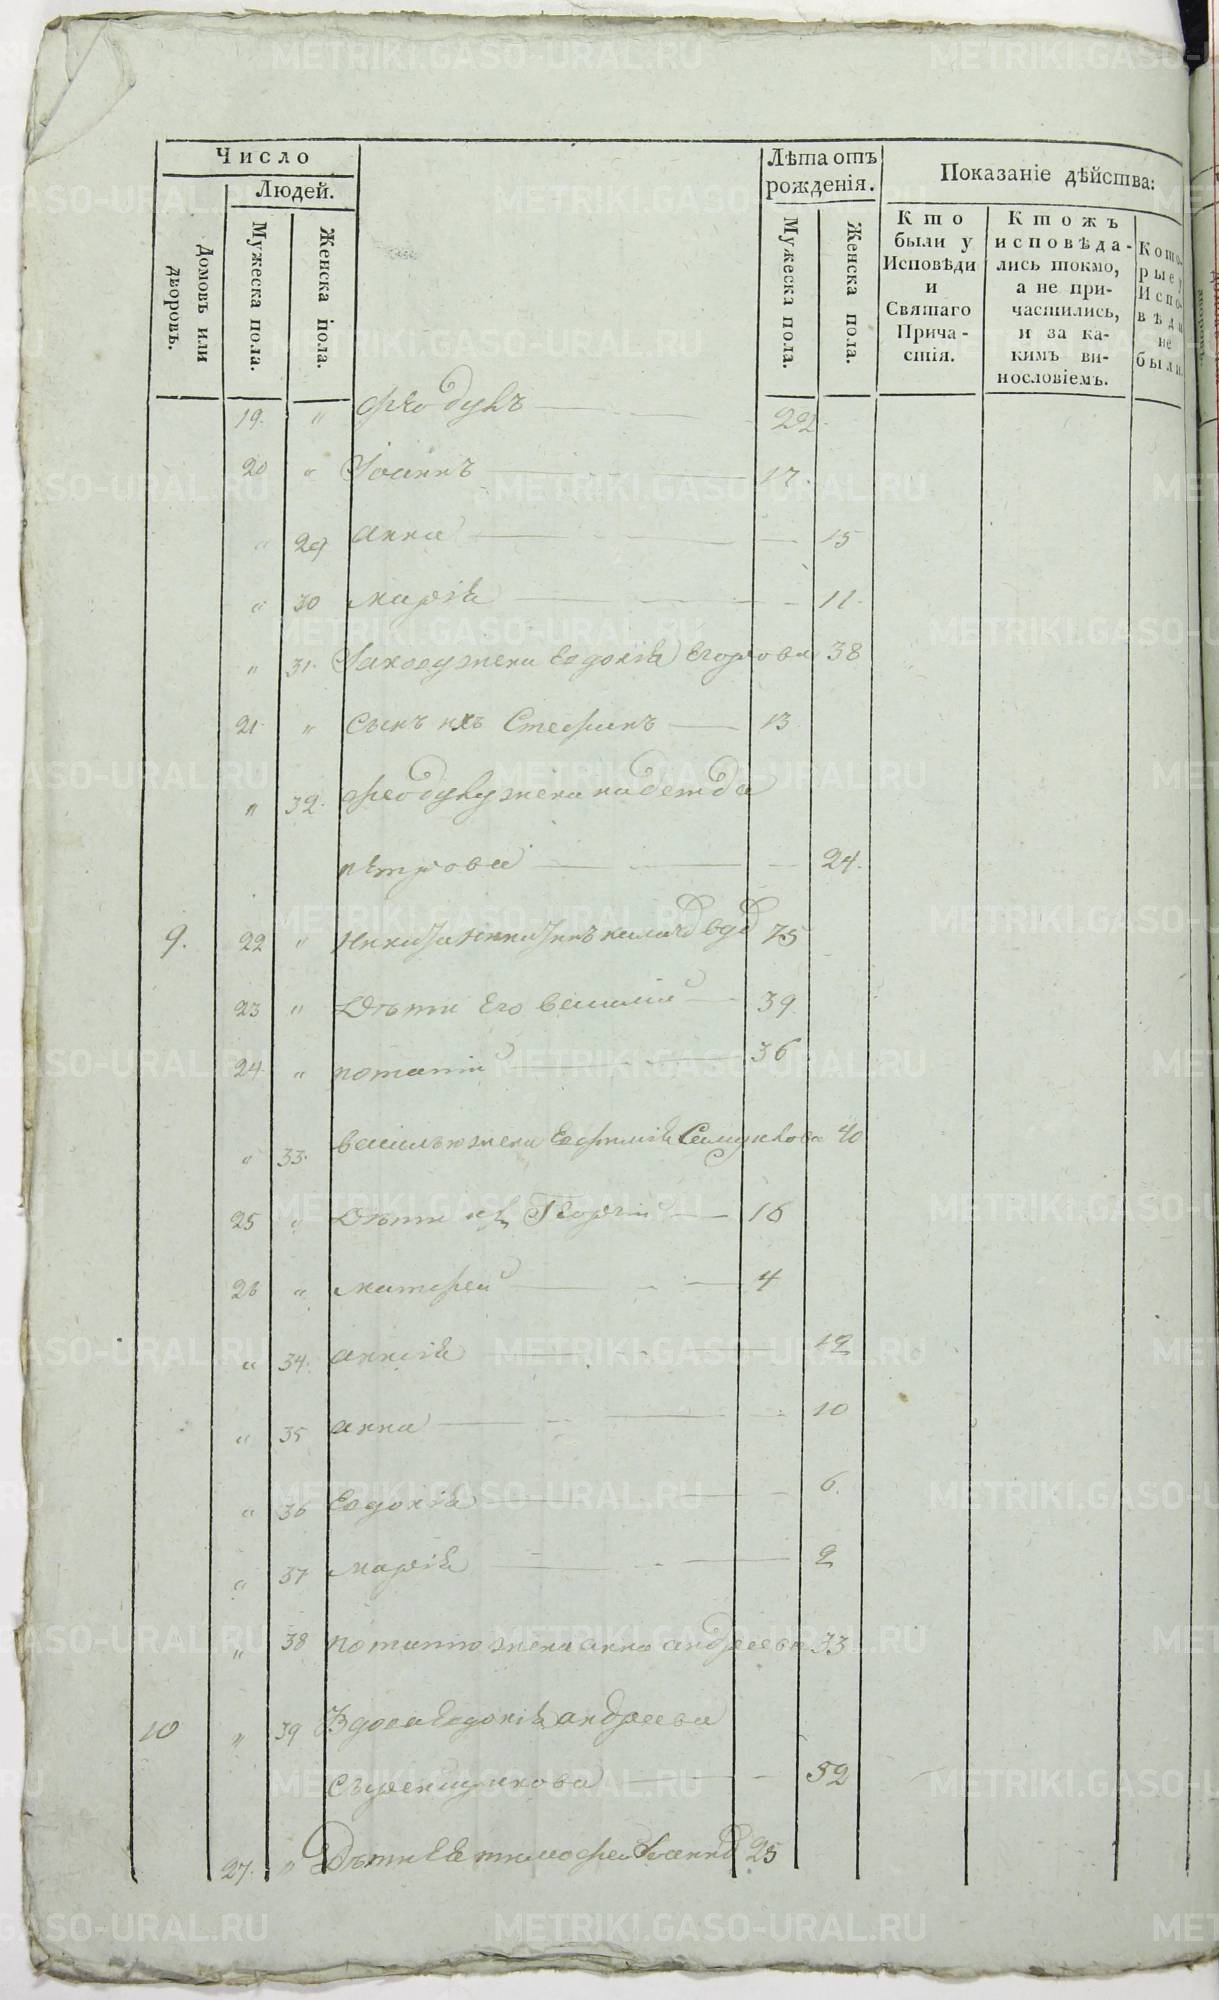 Число
Людей.
Домовъ или дворовъ.
Мужеска пола.
Женска пола.
Лѣта отъ рожденія.
Мужеска пола.
Женска пола.
Показаніе дѣйства:
Кто были у Исповѣди и Святаго Причастія.
Ктожъ исповѣдались токмо, а не причастились, и за какимъ винословіемъ.
Которые у Исповѣди не были.
19. " Феодулъ 22.
20 " Іоаннъ 17.
" 29 Анна 15
" 30 Марія 11.
" 31. Іакову жена Евдокія Егорова 38
21. " Сынъ ихъ Стефанъ 13
" 32. Феодулу жена надежда
петрова 24.
9. 22 " Никита Никитинъ вдо 75
23 " Дѣти Его Василій 39.
24 " потапій 36
" 33. Василью жена Евфимія 40
25 " Дѣти ихъ Георгій 16
26 " Матфей 4
" 34. Аннія 12
" 35 Анна 10
" 36 Евдокія 6.
" 37 Марія 2
" 38 потапію жена анна андреева 33
10 " 39 Вдова Евдокія андреева
52
27. " Дѣти Ея тимофей Іоанно 25
METRIKI.GASO-URAL.RU